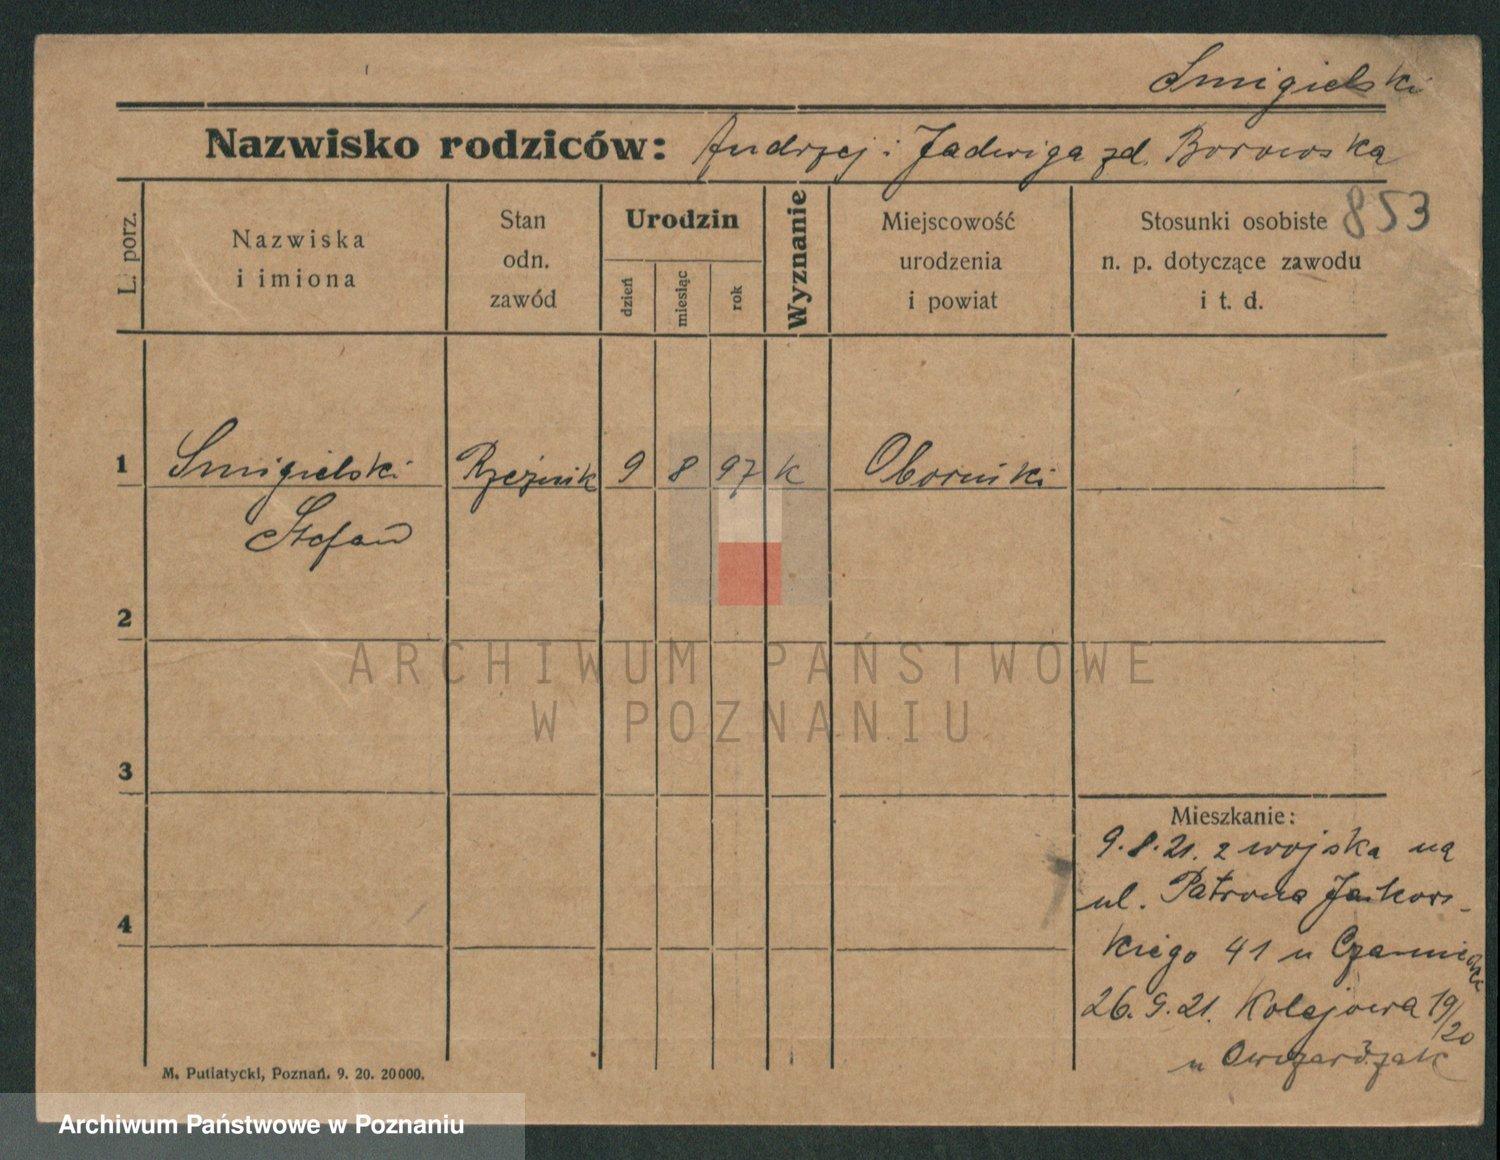 Smigielski
Nazwisko rodziców: Andrzej i Jadwiga zd. Borowska
853
L. porz.
Nazwiska
i imiona
Stan
odn.
zawód
Urodzin
dzień
miesiąc
rok
Wyznanie
Miejscowość
urodzenia
i powiat
Stosunki osobiste
n. p. dotyczące zawodu
i t. d.
1 Smigielski Rzeźnik 9 8 97 k Oborniki
Stefan
2
3
4
ARCHIWUM PAŃSTWOWE
W POZNANIU
Mieszkanie:
9.8.21. z wojska na
ul. Patrona Jackows-
kiego 41 u
26.9.21. Kolejowa 19/20
u Owczarzak
M. Putiatycki, Poznań. 9. 20. 20000.
Archiwum Państwowe w Poznaniu